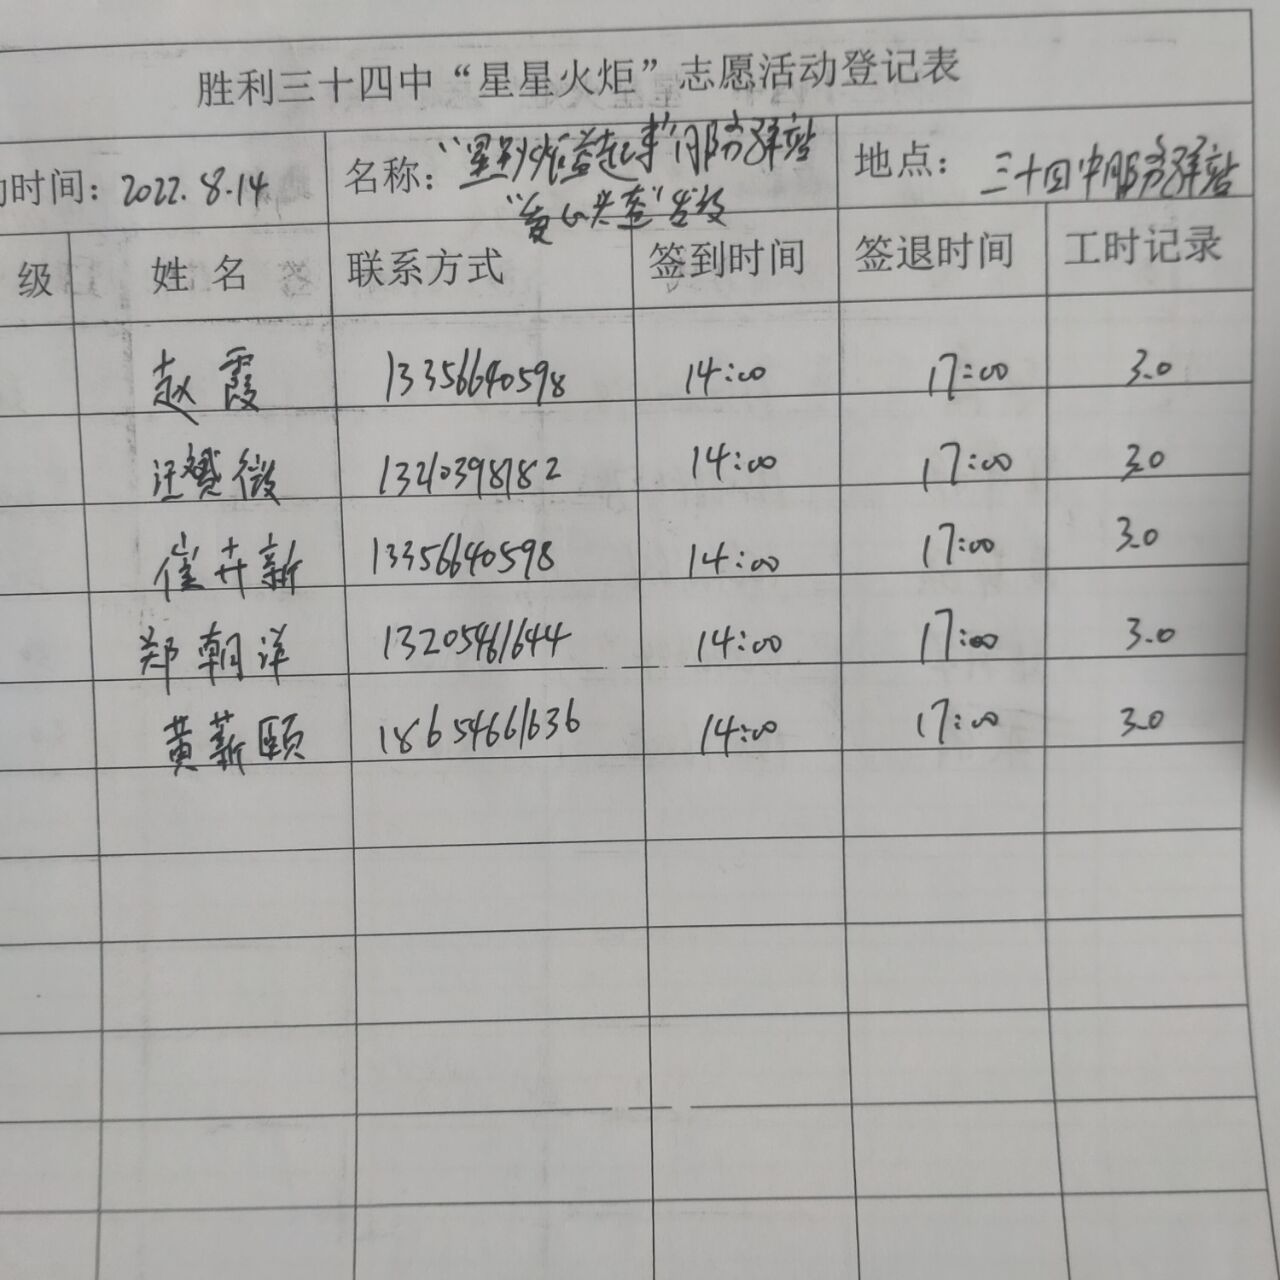 胜利三十四中“星星火炬”志愿活动登记表
动时间：2022.8.14 名称：“星星火炬益起来”服务驿站 地点：三十四中服务驿站
“爱心义卖”
级 姓名 联系方式 签到时间 签退时间 工时记录
赵霞 13356640598 14:00 17:00 3.0
汪赟微 13210398182 14:00 17:00 3.0
崔卉新 13356640598 14:00 17:00 3.0
郑朝洋 13205461644 14:00 17:00 3.0
黄薪颐 18654661636 14:00 17:00 3.0